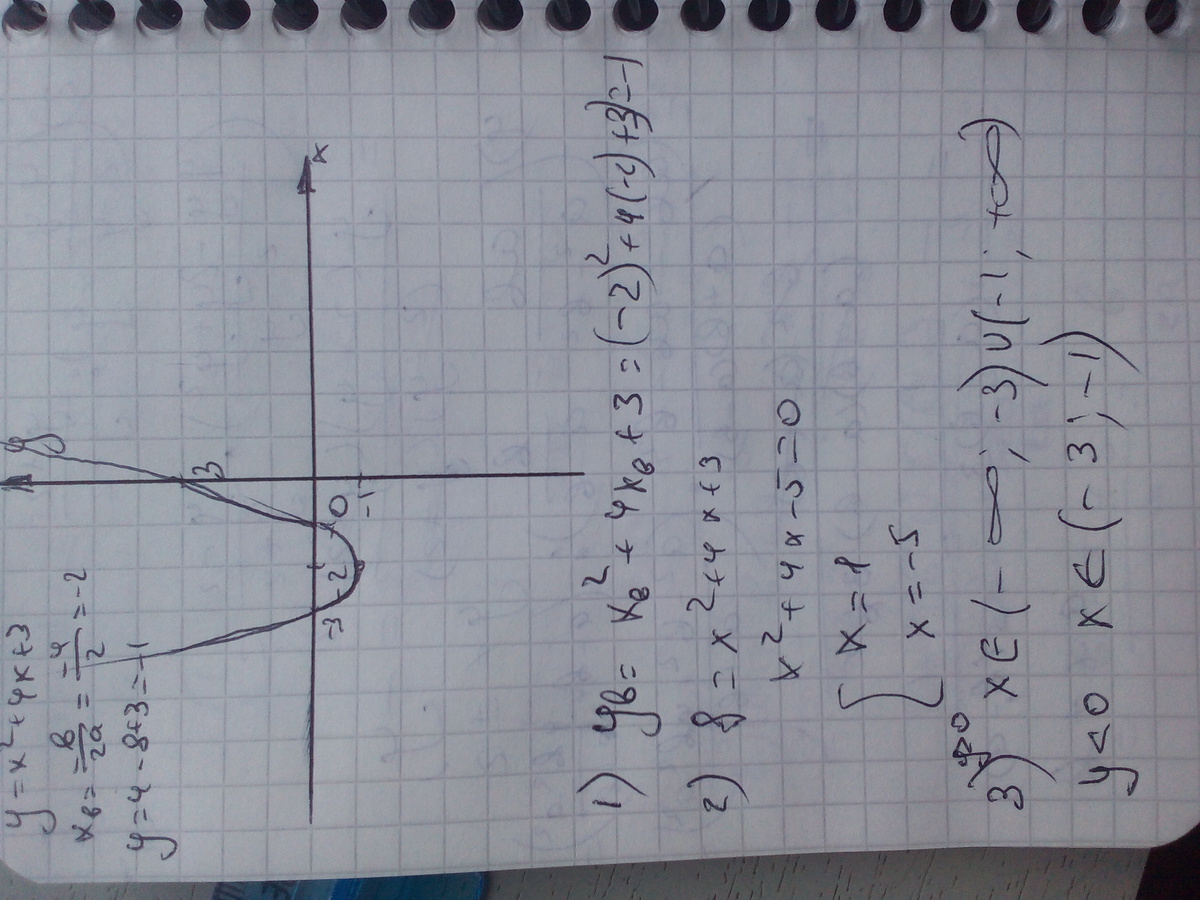 y = x² + 4x + 3
x_в = -в/2a = -4/2 = -2
y = 4 - 8 + 3 = -1
y
3
x
-3
-2
0
-1
1) y_в = x_в² + 4x_в + 3 = (-2)² + 4(-2) + 3) = -1
2) 8 = x² + 4x + 3
x² + 4x - 5 = 0
[ x = 1
x = -5
3) y>0 x ∈ (-∞; -3) ∪ (-1; +∞)
y < 0 x ∈ (-3; -1)